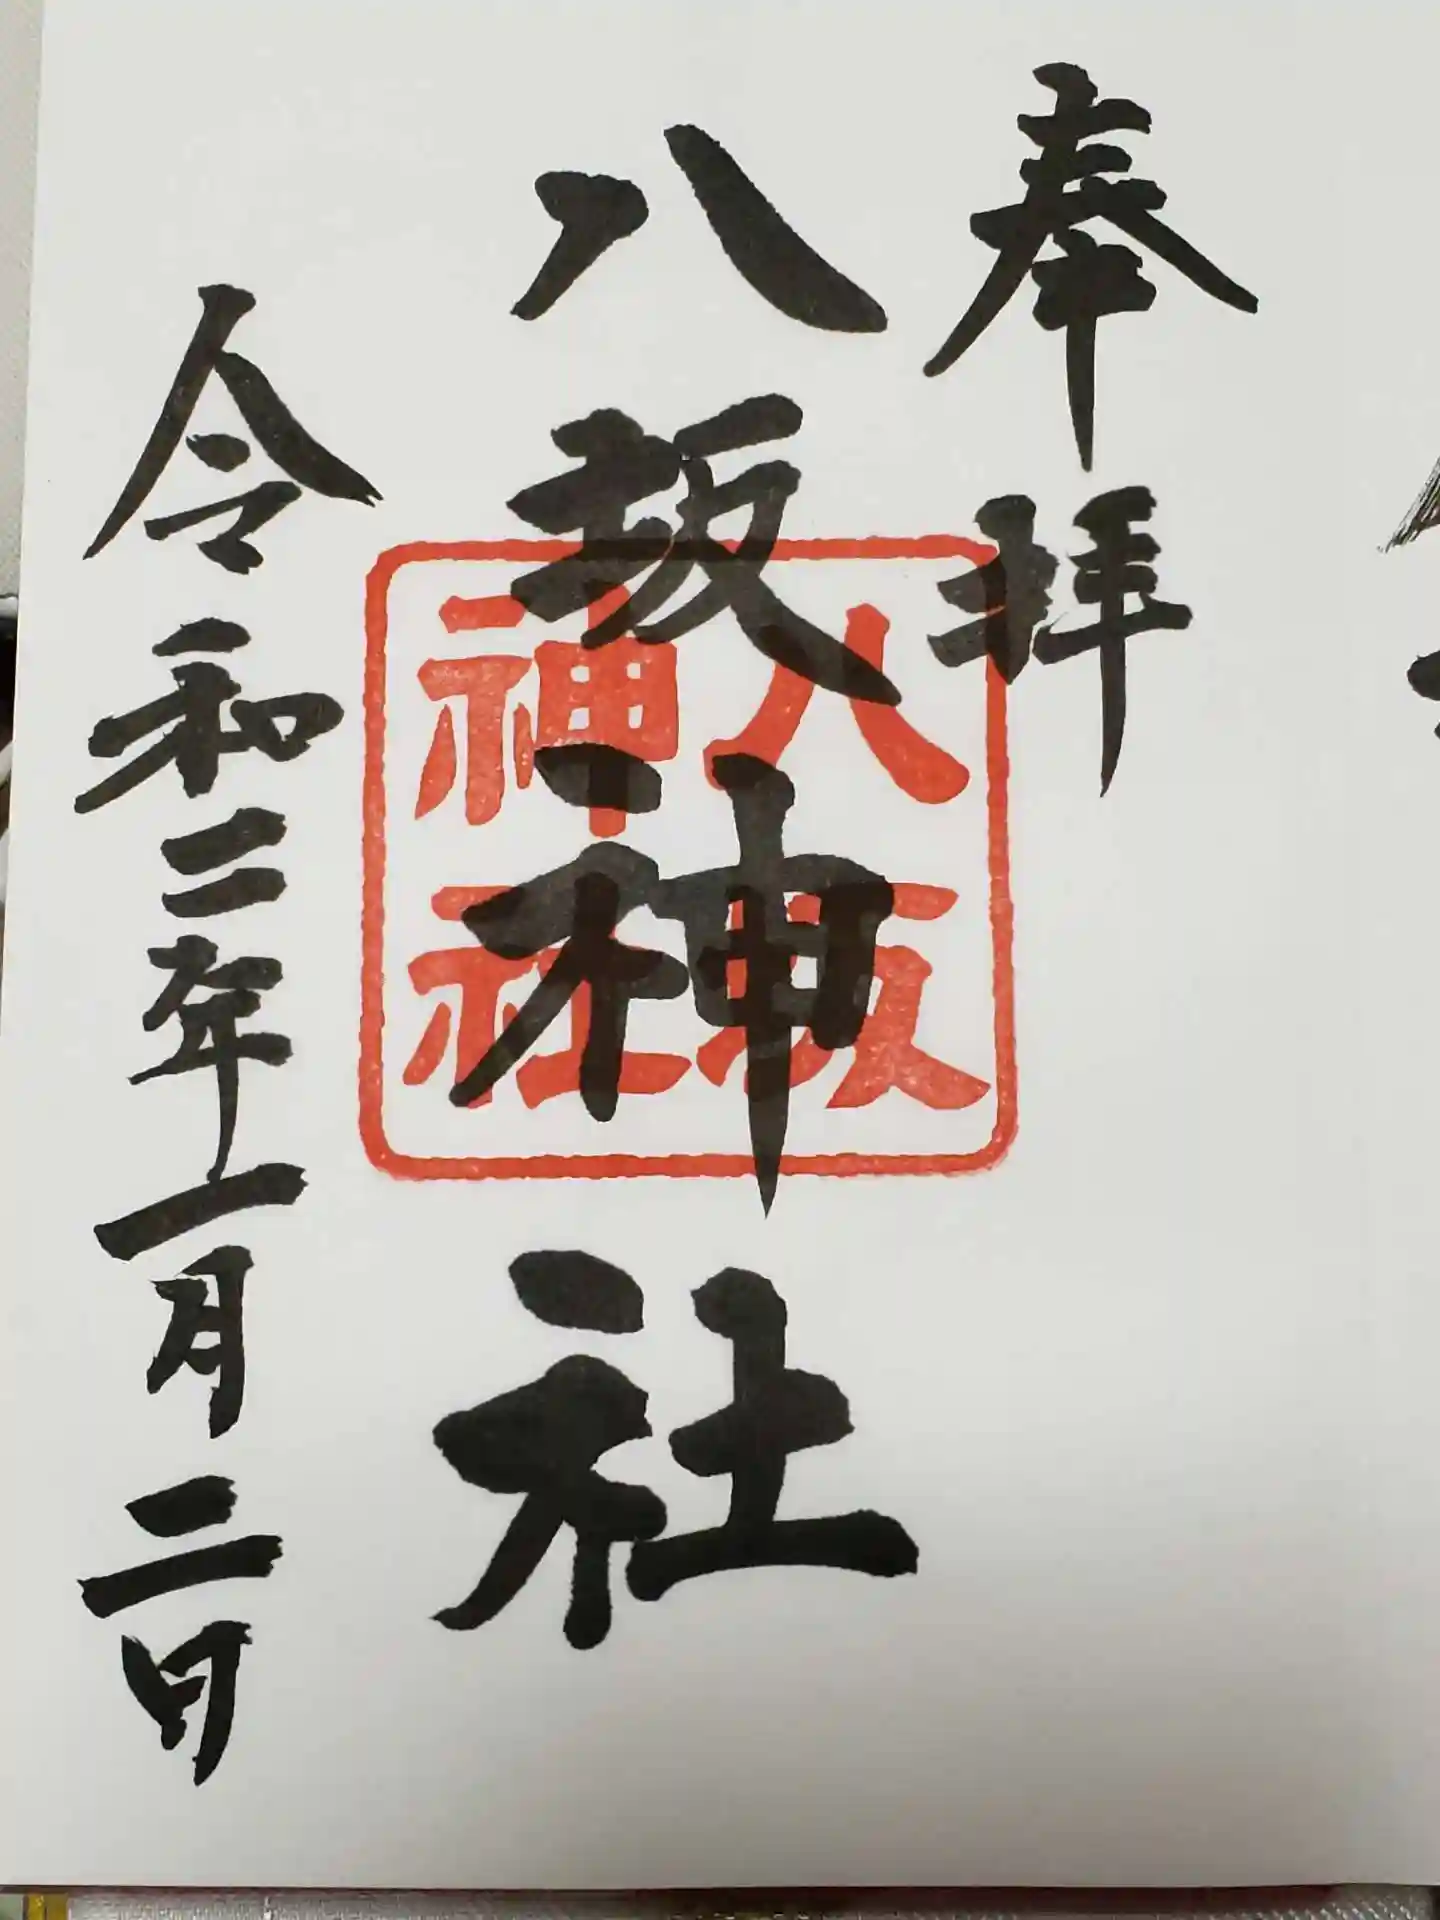 奉拝
八坂神社
八坂
神社
令和二年一月二日